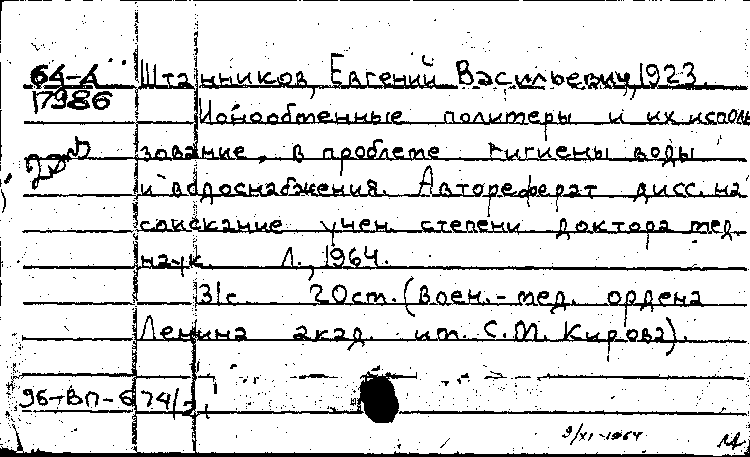 64-4 Штанников, Евгений Васильевич, 1923.
17986 Ионообменные полимеры и их исполь
зование, в проблеме гигиены воды
и водоснабжения. Автореферат дисс. на
соискание учен. степени доктора мед.
наук. Л., 1964.
31с. 20см. (Воен.-мед. ордена
Ленина акад. им. С.М. Кирова).
96-ВП-674/2
9/XI-1964